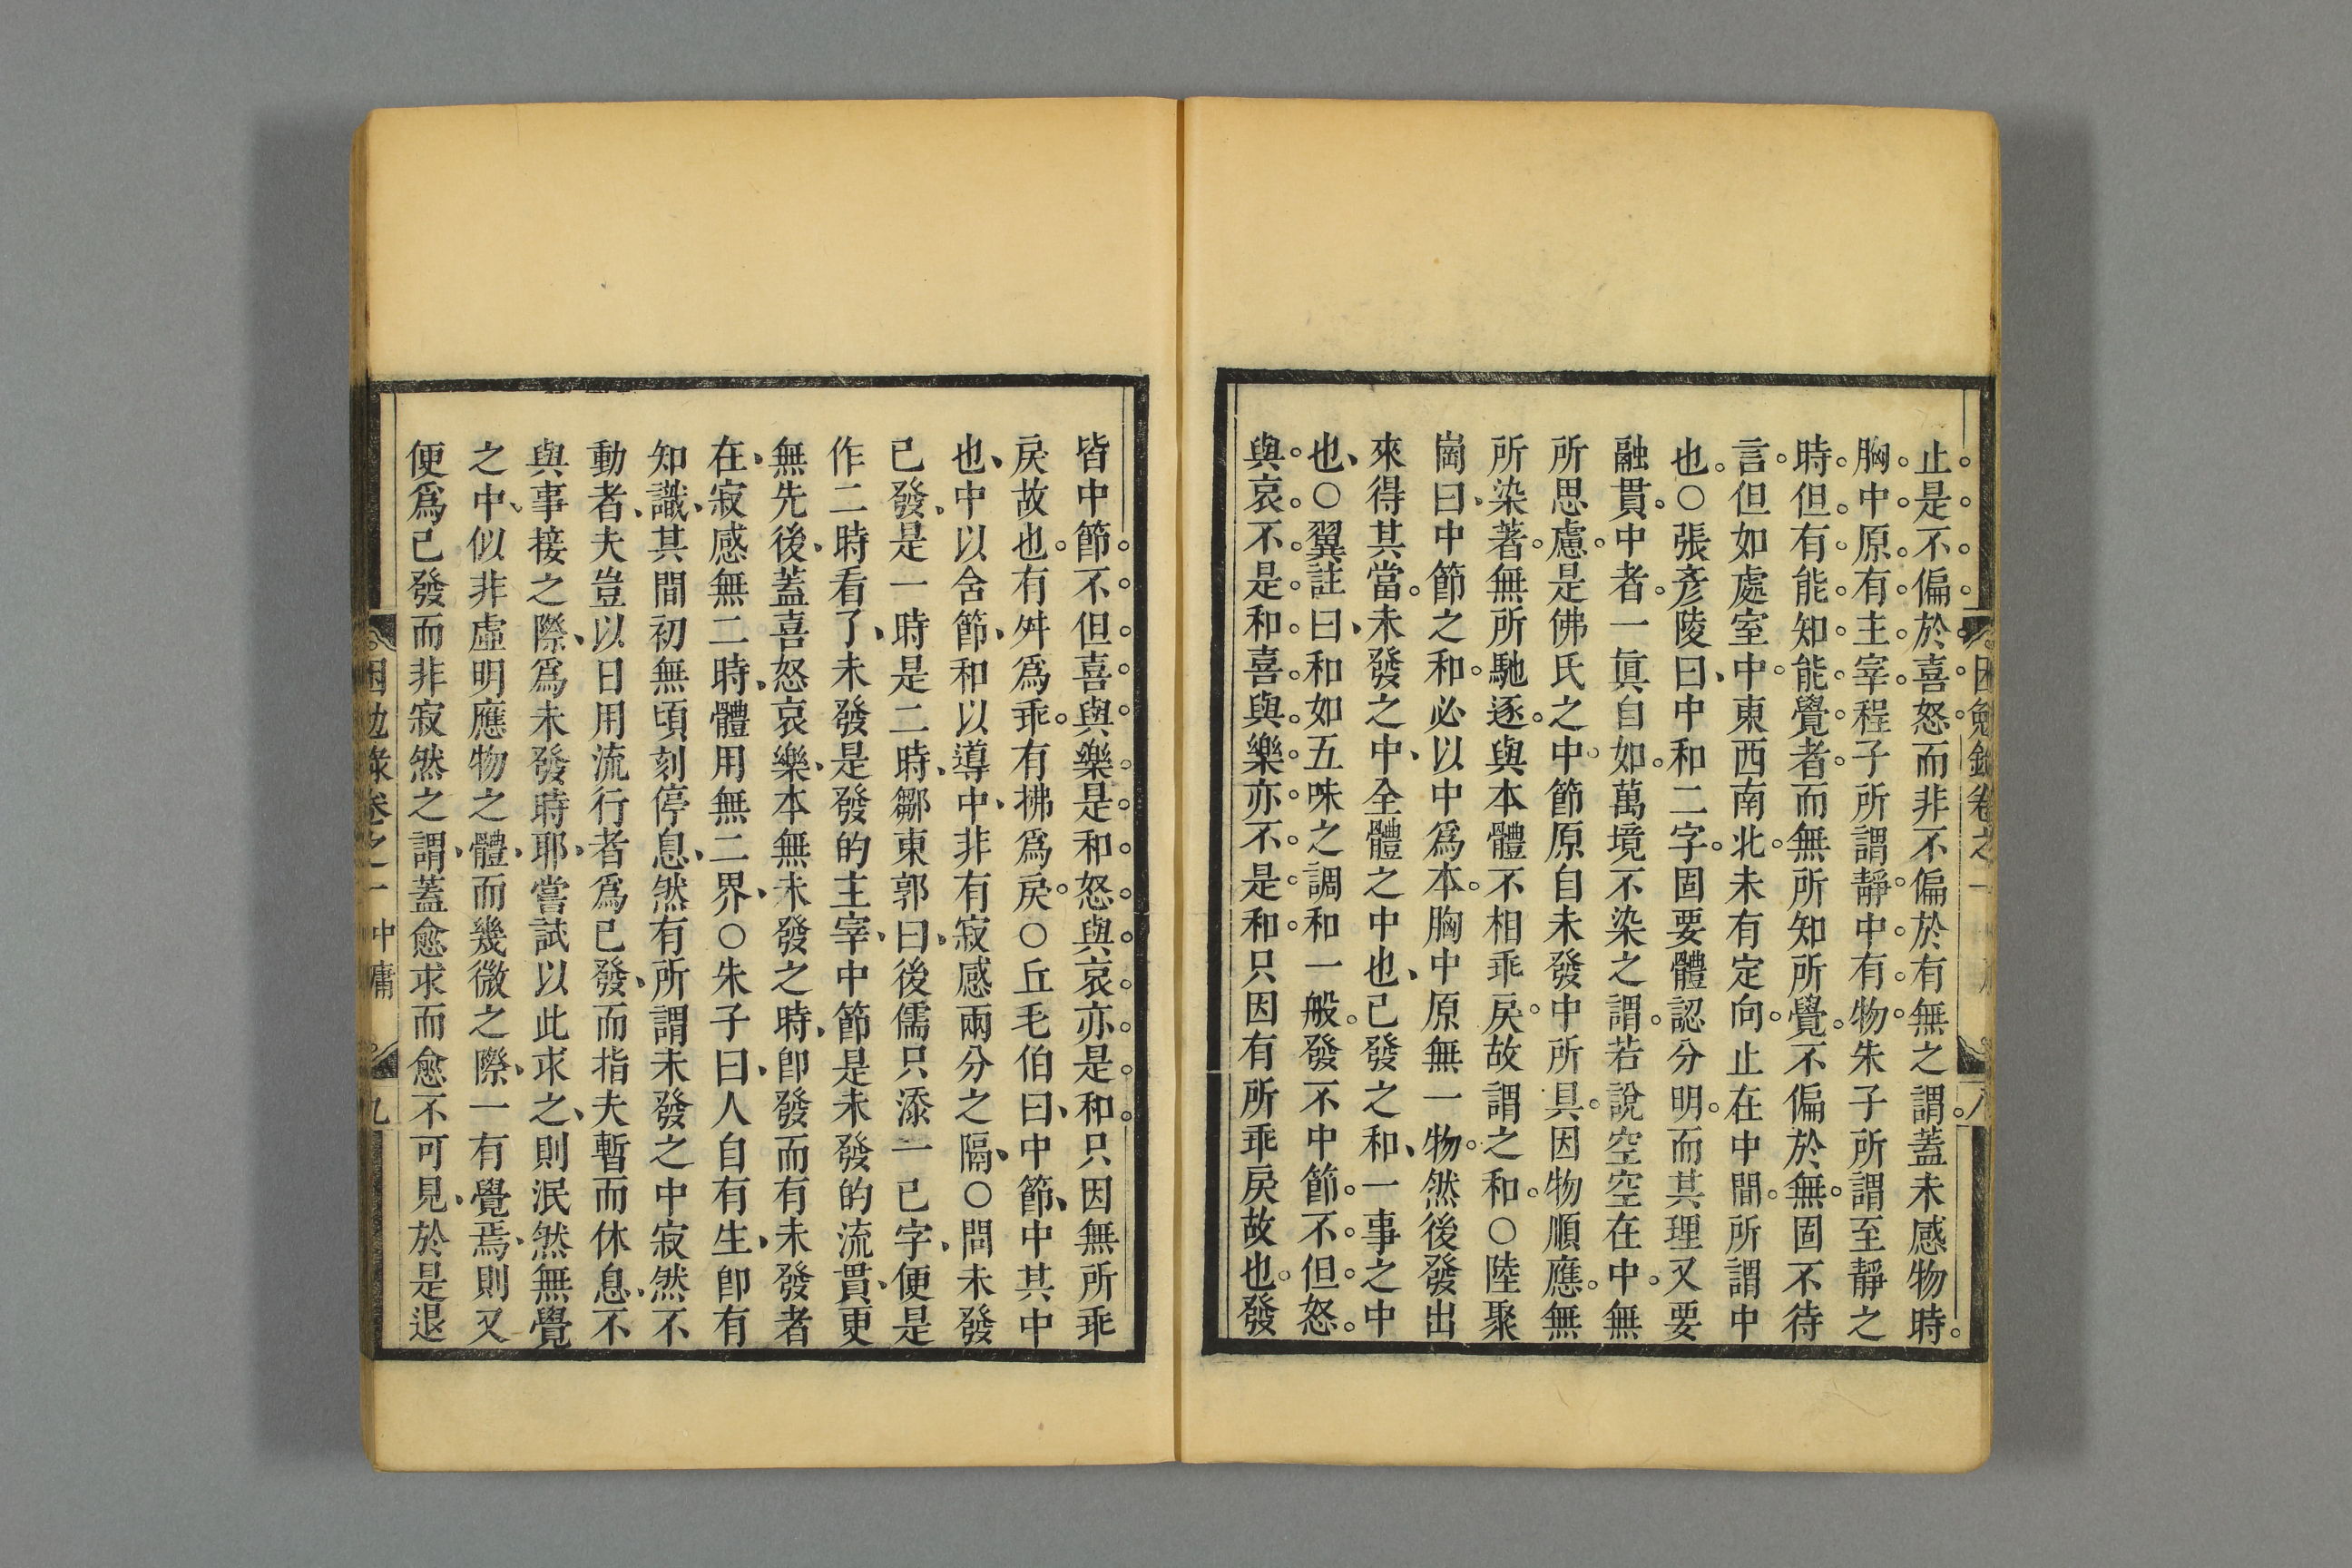 止是不偏於喜怒而非不偏於有無之謂蓋未感物時
胸中原有主宰程子所謂靜中有物朱子所謂至靜之
時但有能知能覺者而無所知所覺不偏於無固不待
言但如處室中東西南北未有定向止在中間所謂中
也○張彥陵曰中和二字固要體認分明而其理又要
融貫中者一眞自如萬境不染之謂若說空空在中無
所思慮是佛氏之中節原自未發中所具因物順應無
所染著無所馳逐與本體不相乖戾故謂之和○陸聚
崗曰中節之和必以中爲本胸中原無一物然後發出
來得其當未發之中全體之中也已發之和一事之中
也○翼註曰和如五味之調和一般發不中節不但怒
與哀不是和喜與樂亦不是和只因有所乖戾故也發
皆中節不但喜與樂是和怒與哀亦是和只因無所乖
戾故也有舛爲乖有拂爲戾○丘毛伯曰中節中其中
也中以舍節和以導中非有寂感兩分之隔○問未發
已發是一時是二時鄒東郭曰後儒只添一已字便是
作二時看了未發是發的主宰中節是未發的流貫更
無先後蓋喜怒哀樂本無未發之時卽發而有未發者
在寂感無二時體用無二界○朱子曰人自有生卽有
知識其間初無頃刻停息然有所謂未發之中寂然不
動者夫豈以日用流行者爲已發而指夫暫而休息不
與事接之際爲未發時耶嘗試以此求之則泯然無覺
之中似非虛明應物之體而幾微之際一有覺焉則又
便爲已發而非寂然之謂蓋愈求而愈不可見於是退
困勉錄卷之一 中庸 九